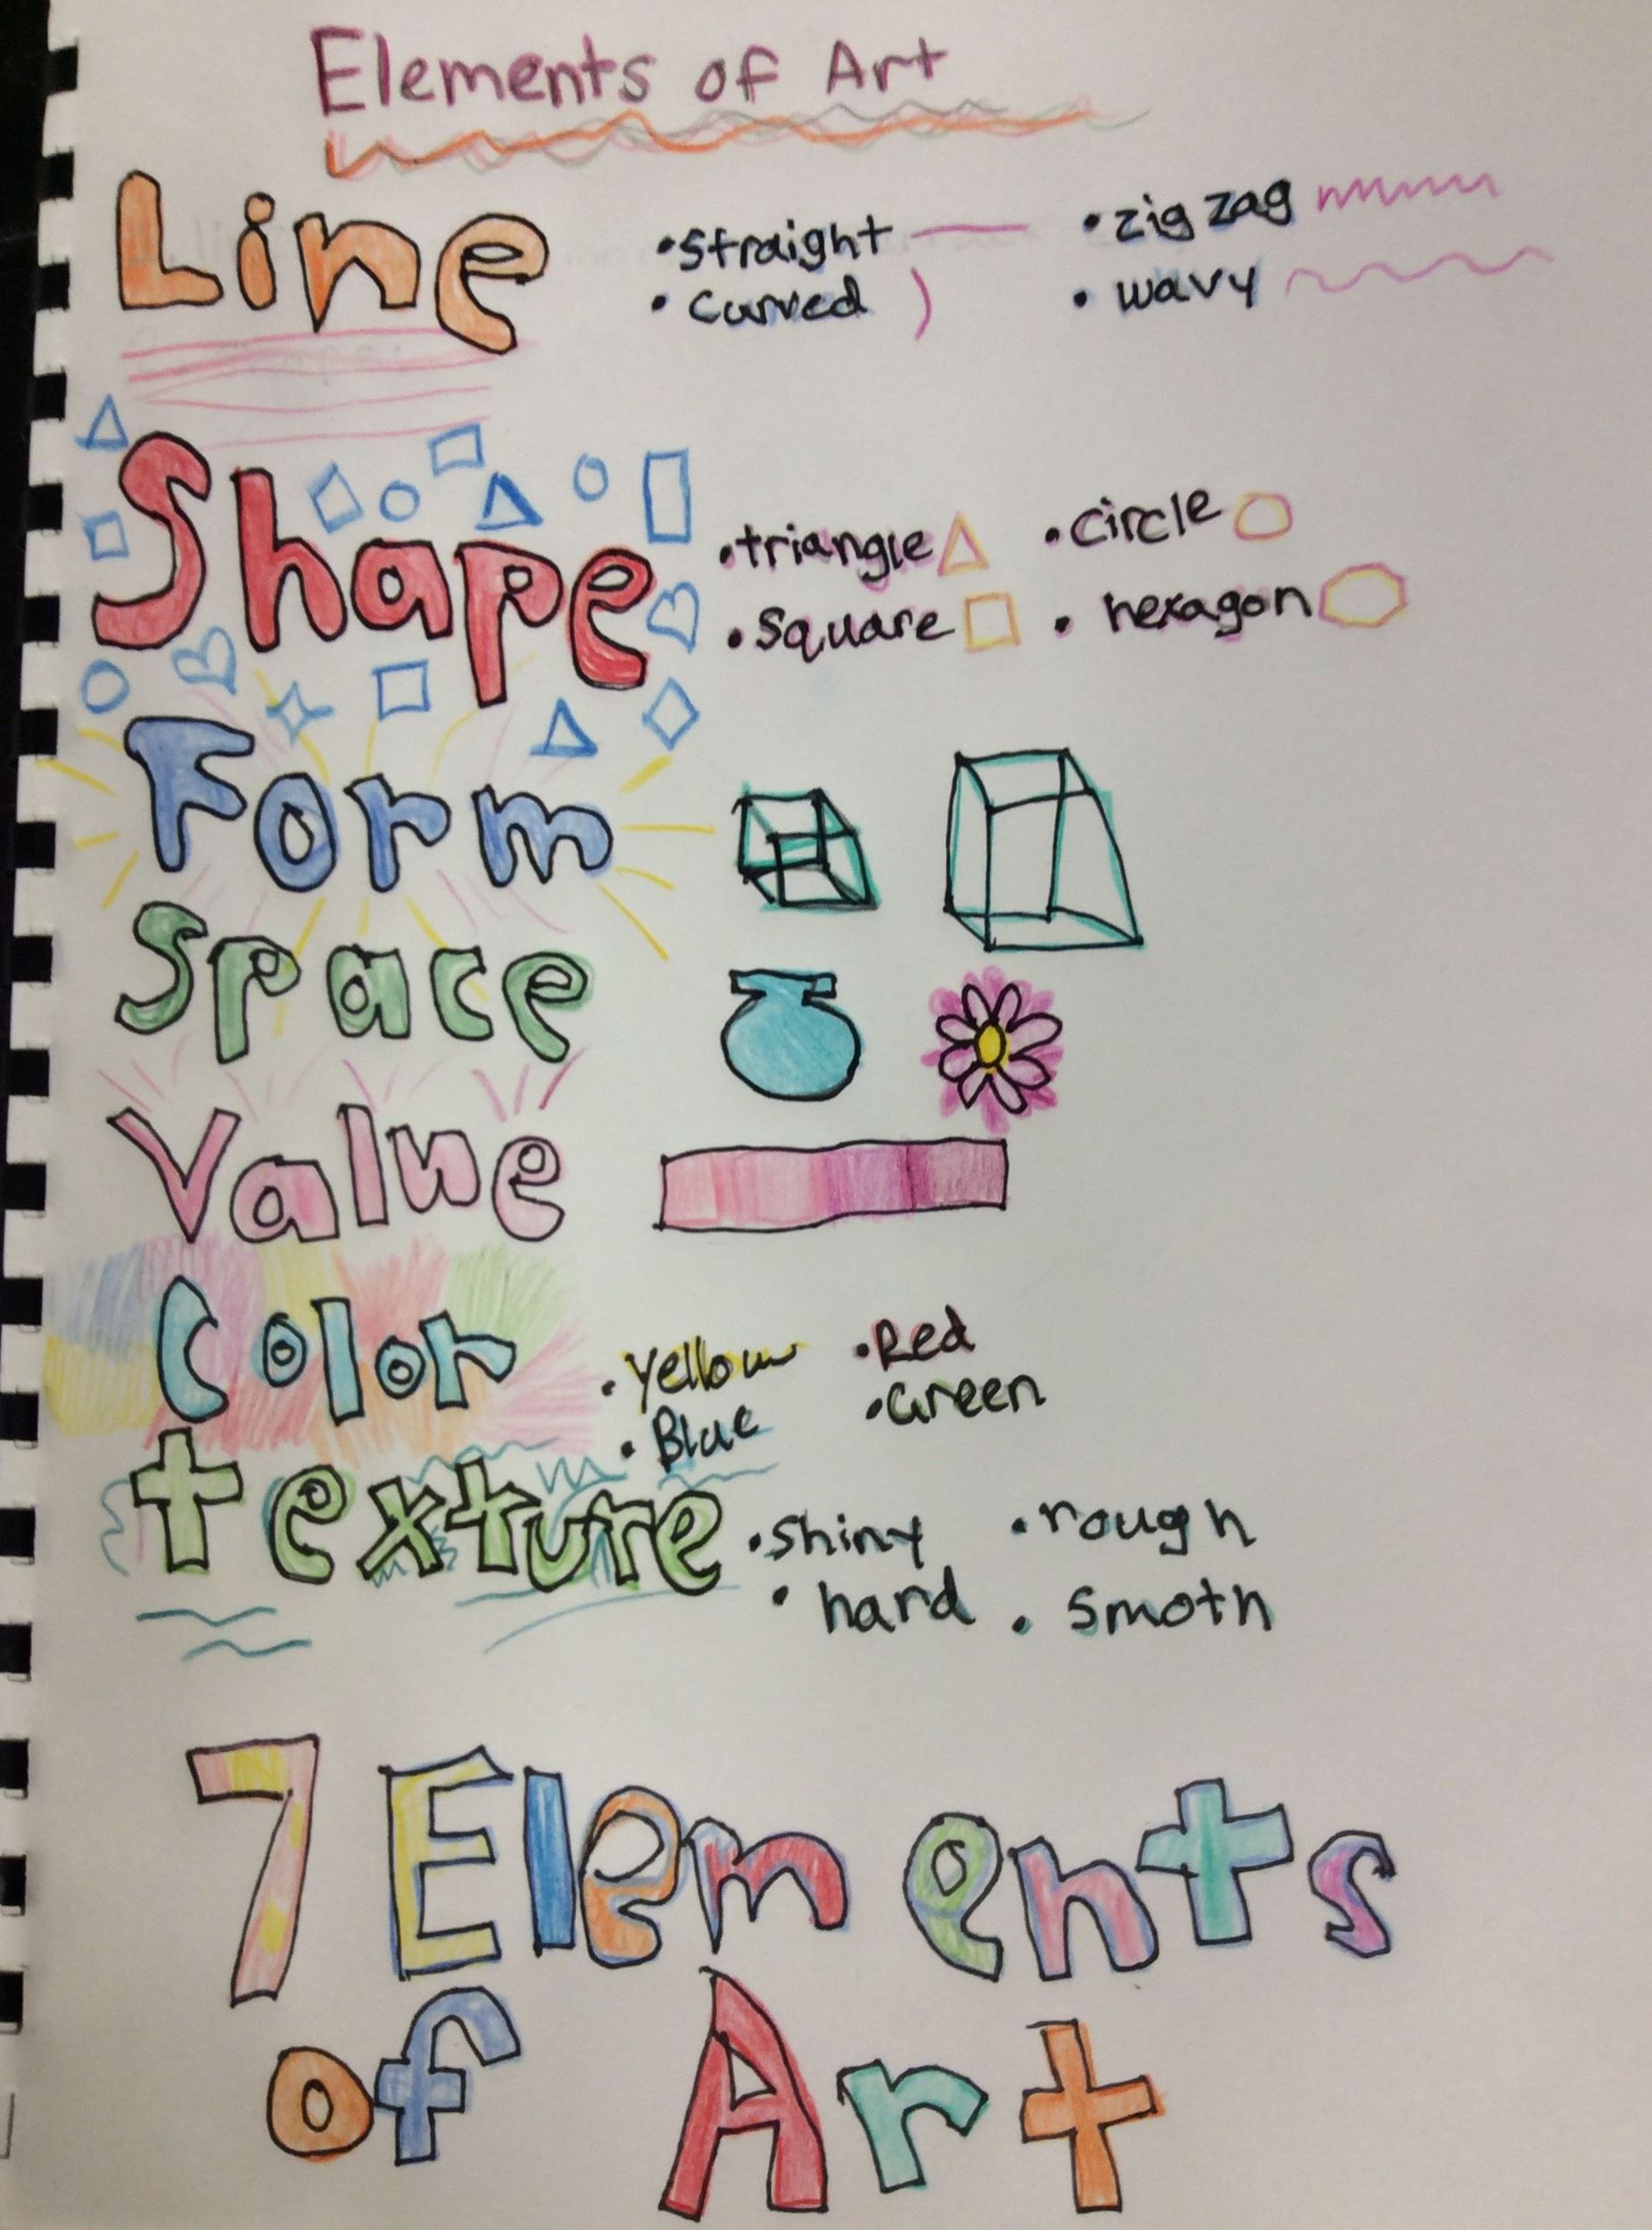 Elements of Art
Line
•straight •zig zag
•curved •wavy
Shape
•triangle •circle
•square •hexagon
Form
Space
Value
Color
•yellow •Red
•Blue •Green
texture
•shiny •rough
•hard •smoth
7 Elements
of Art